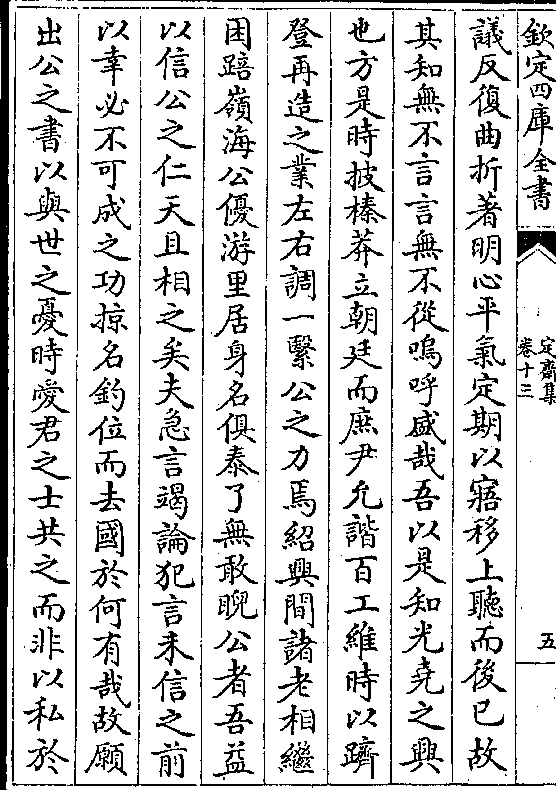 欽定四庫全書
定齋集
卷十三
五
議反復曲折著明心平氣定期以寤移上聽而後已故
其知無不言言無不從嗚呼盛哉吾以是知光堯之興
也方是時披榛莽立朝廷而庶尹允諧百工維時以躋
登再造之業左右調一繄公之力焉紹興間諸老相繼
困踣嶺海公優游里居身名俱泰了無敢睨公者吾益
以信公之仁天且相之矣夫急言竭論犯言未信之前
以幸必不可成之功掠名釣位而去國於何有哉故願
出公之書以與世之憂時愛君之士共之而非以私於